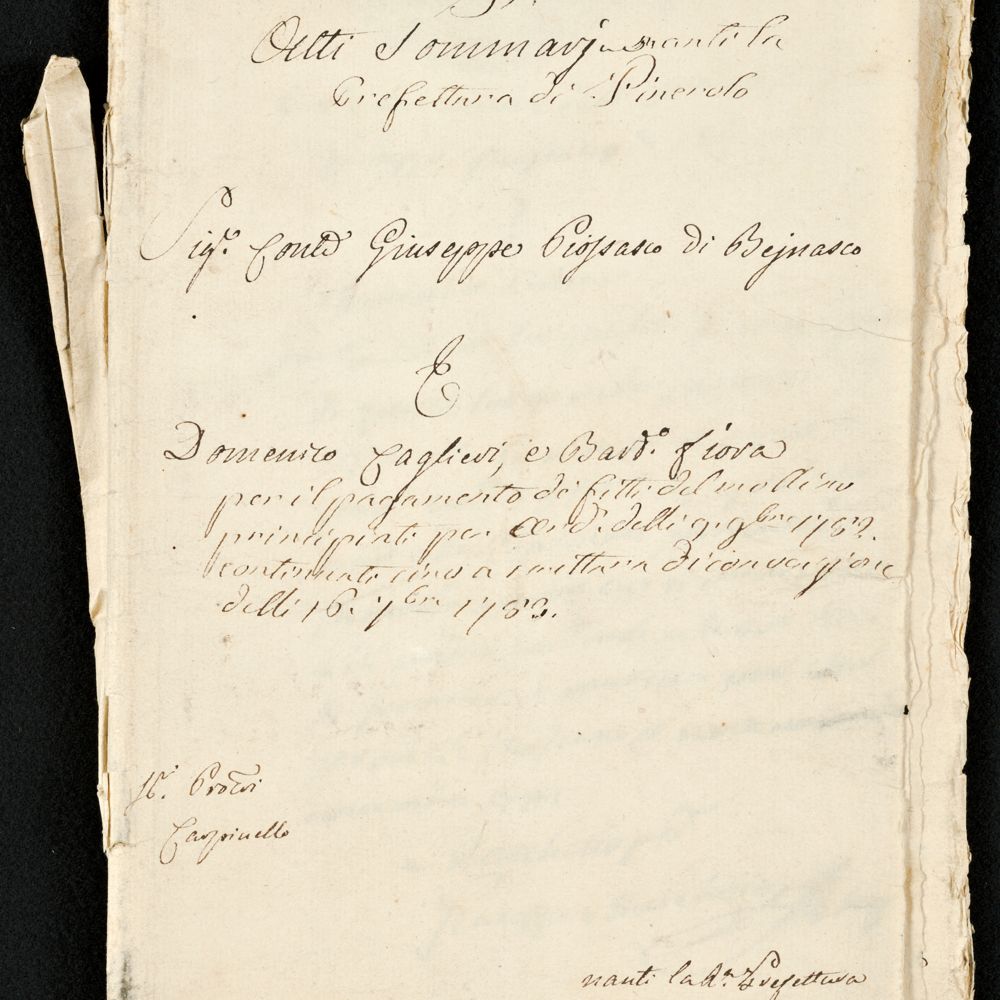 Atti Sommarj nanti la
Prefettura di Pinerolo
Sig.r Conte Giuseppe Piossasco di Bejnasco
E
Domenico Caglieri, e Bard.o fiora
per il pagamento de fitti del mollino
principiati per Ord.a delli 9. 9bre 1782.
continuati sino a scrittura di convenzione
delli 16. 7bre 1783.
Sig. Procri
Carpinello
nanti la R.a Prefettura